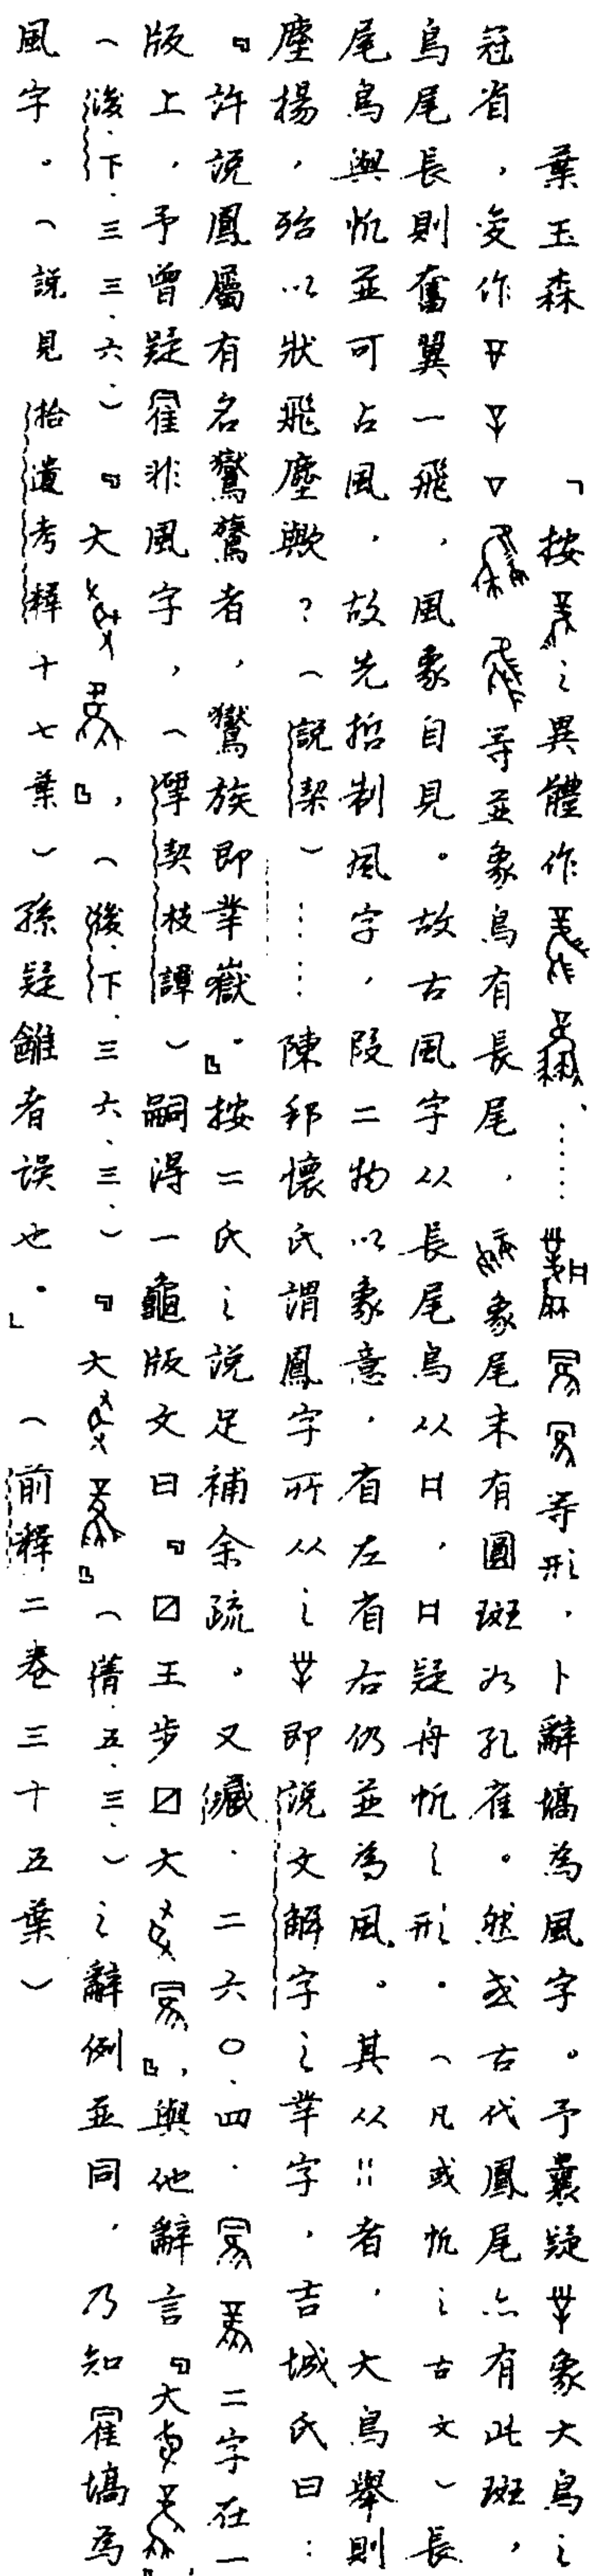 葉玉森　「按之異體作、……等形，卜辭塙為風字。予曩疑象大鳥之
冠省，变作等並象鳥有長尾，象尾末有圓斑如孔雀。然或古代鳳尾亦有此斑，
鳥尾長則奮翼一飛，風象自見。故古風字从長尾鳥从，疑舟帆之形。（凡或帆之古文）長
尾鳥與帆並可占風，故先哲制風字，叚二物以象意，省左省右仍並為風。其从者，大鳥舉則
塵揚，殆以狀飛塵歟？（説契）……陳邦懷氏謂鳳字所从之即説文解字之丵字，吉城氏曰：
『許説鳳屬有名鸑鷟者，鸑族即丵嶽。』按二氏之説足補余疏。又藏．二六〇．四．二字在一
版上，予曾疑非風字，（揅契枝譚）嗣得一龜版文曰『☑王步☑大』，與他辭言『大』，
（後．下．三三．六．）『大』，（後．下．三六．三．）『大』（菁．五．三．）之辭例並同，乃知塙為
風字。（説見拾遺考釋十七葉）孫疑雝者误也。」　（前釋二卷三十五葉）